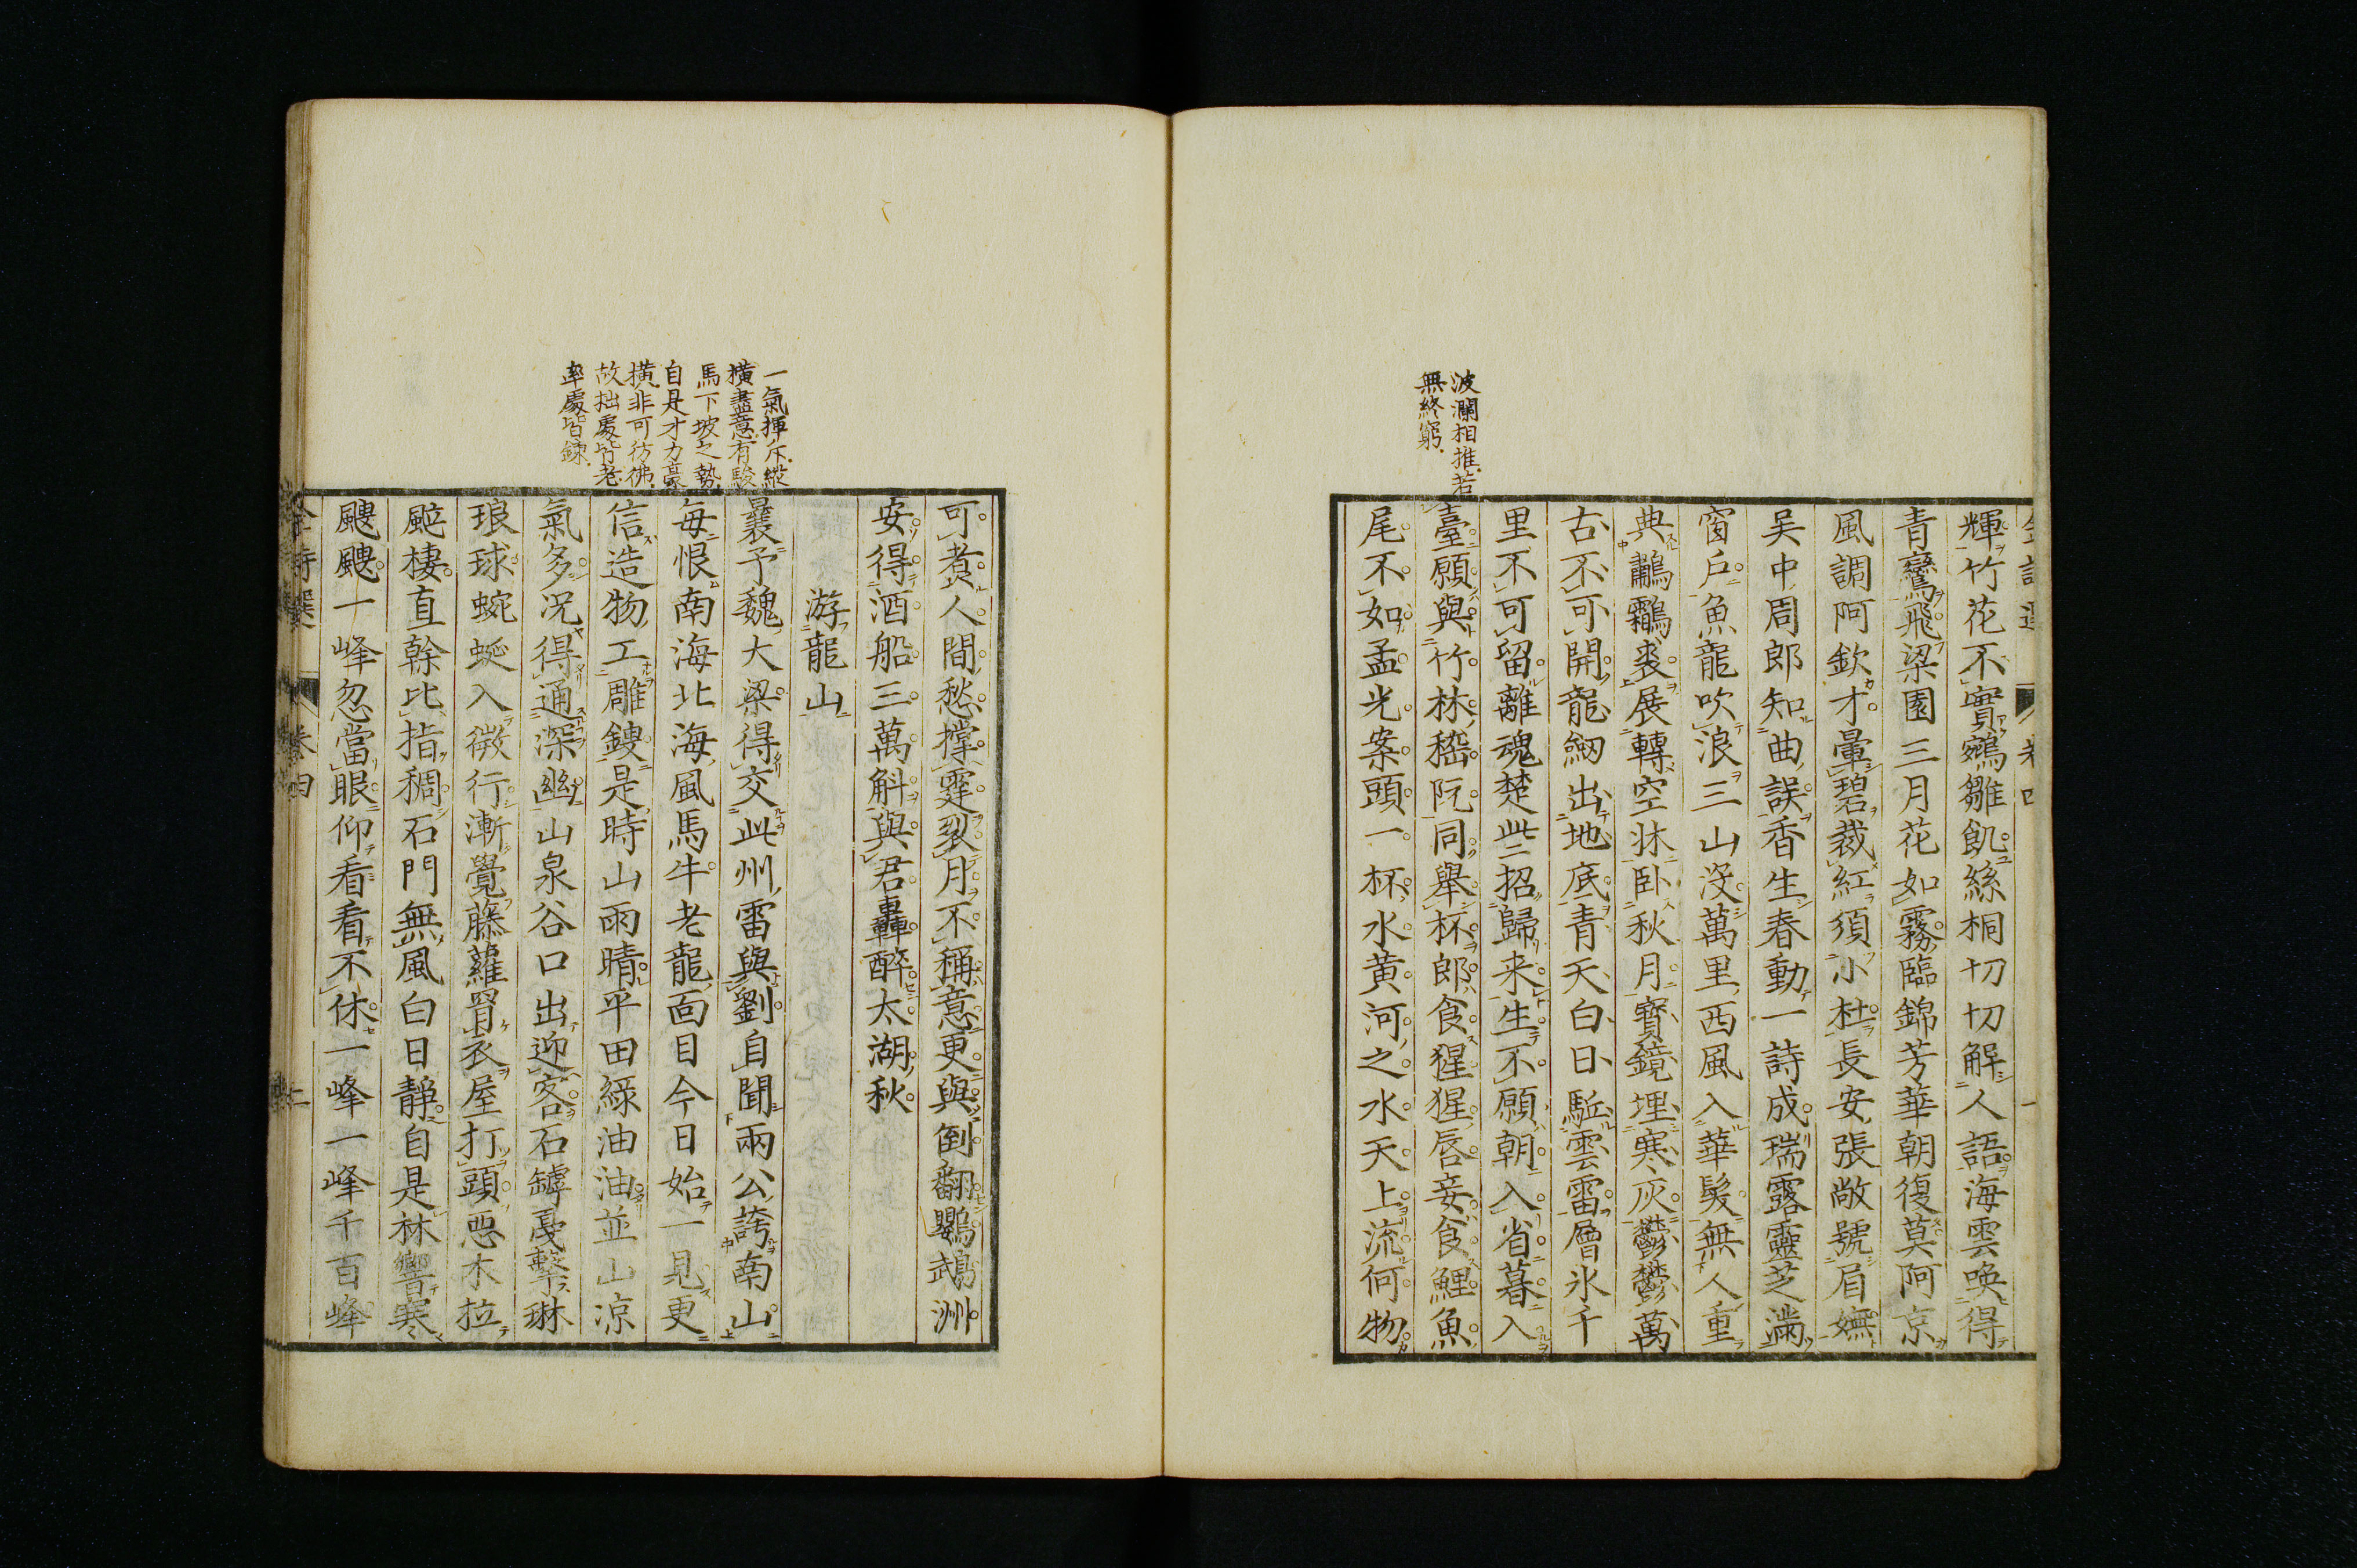 輝竹花不實鵷雛飢絲桐切切解人語海雲喚得
青鸞飛梁園三月花如霧臨錦芳華朝復莫阿京
風調阿欽才暈碧裁紅須小杜長安張敞號眉嫵
吳中周郎知曲誤香生春動一詩成瑞露靈芝滿
窗戶魚龍吹浪三山沒萬里西風入華髮無人重
典鷫鸘裘展轉空牀臥秋月寶鏡埋寒灰鬱鬱萬
古不可開龍劒出地底青天白日駈雲雷層氷千
里不可留離魂楚些招歸来生不願朝入省暮入
臺願與竹林嵇阮同舉杯郎食猩猩唇妾食鯉魚
尾不如孟光案頭一杯水黄河之水天上流何物
波瀾相推若
無終窮
可煑人間愁撑霆裂月不稱意更與倒翻鸚鵡洲
安得酒船三萬斛與君轟醉太湖秋
游龍山
曩予魏大梁得交此州雷與劉自聞兩公誇南山
每恨南海北海風馬牛老龍面目今日始一見更
信造物工雕鎪是時山雨晴平田綠油油並山凉
氣多況得通深幽山泉谷口出迎客石罅戞擊琳
琅球蜿蜒入微行漸覺藤蘿罥衣屋打頭惡木拉
颯棲直榦比指稠石門無風白日靜自是林響寒
颼颼一峰忽當眼仰看看不休一峰一峰千百峰
一氣揮斥縱
橫盡意有駿
馬下坡之勢
自是才力豪
橫非可彷彿
故拙處皆老
率處皆鍊
金詩選
卷四